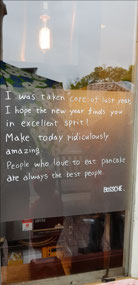 I was taken care of last year,
I hope the new year finds you
in excellent sprit!
Make today ridiculously
amazing
People who love to eat pancake
are always the best people.